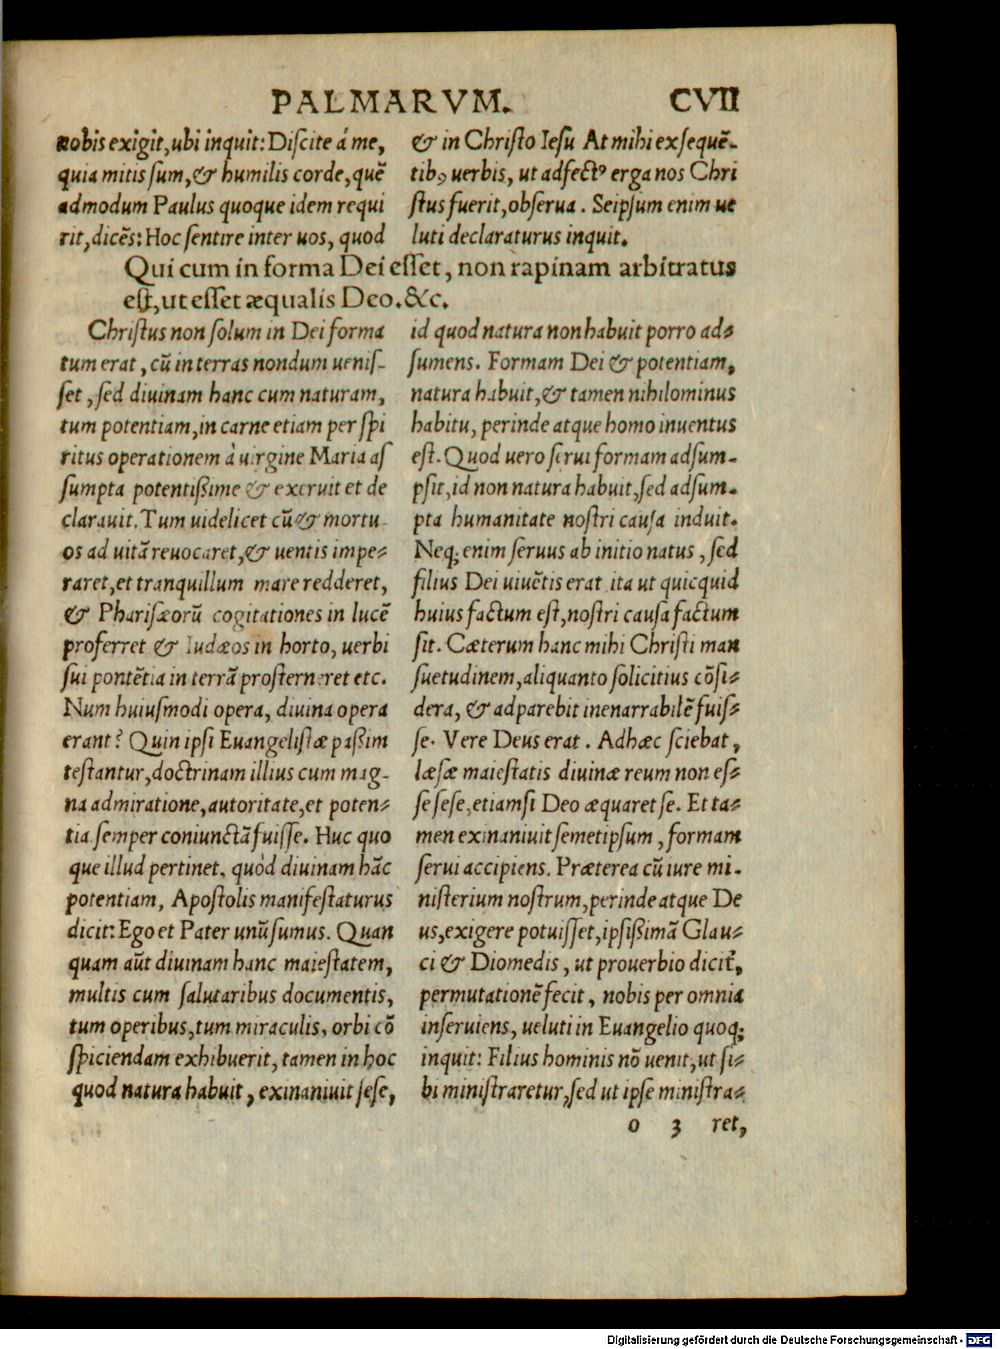 PALMARVM. CVII
nobis exigit, ubi inquit: Diſcite á me,
quia mitis ſum, & humilis corde, quẽ
admodum Paulus quoque idem requi
rit, dicẽs: Hoc ſentire inter uos, quod
& in Chriſto Ieſu At mihi ex ſequẽ-
tibꝰ uerbis, ut adfectꝰ erga nos Chri
ſtus fuerit, obſerua. Seipſum enim ue
luti declaraturus inquit.
Qui cum in forma Dei eſſet, non rapinam arbitratus
eſt, ut eſſet æqualis Deo. &c.
Chriſtus non ſolum in Dei forma
tum erat, cũ in terras nondum ueniſ-
ſet, ſed diuinam hanc cum naturam,
tum potentiam, in carne etiam per ſpi
ritus operationem à uirgine Maria aſ
ſumpta potentißime & exeruit et de
clarauit. Tum uidelicet cũ & mortu
os ad uitã reuocaret, & uentis impe-
raret, et tranquillum mare redderet,
& Phariſæorũ cogitationes in lucẽ
proferret & Iudæos in horto, uerbi
ſui pontẽtia in terrã proſterneret etc.
Num huiuſmodi opera, diuina opera
erant? Quin ipſi Euangeliſtæ paßim
teſtantur, doctrinam illius cum mag-
na admiratione, autoritate, et poten-
tia ſemper coniunctã fuiſſe. Huc quo
que illud pertinet, quòd diuinam hãc
potentiam, Apoſtolis manifeſtaturus
dicit: Ego et Pater unũ ſumus. Quan
quam aũt diuinam hanc maieſtatem,
multis cum ſalutaribus documentis,
tum operibus, tum miraculis, orbi cõ
ſpiciendam exhibuerit, tamen in hoc
quod natura habuit, exinaniuit ſeſe,
id quod natura non habuit porro ad-
ſumens. Formam Dei & potentiam,
natura habuit, & tamen nihilominus
habitu, perinde atque homo inuentus
eſt. Quod uero ſerui formam adſum-
pſit, id non natura habuit, ſed adſum-
pta humanitate noſtri cauſa induit.
Neq; enim ſeruus ab initio natus, ſed
filius Dei uiuẽtis erat ita ut quicquid
huius factum eſt, noſtri cauſa factum
ſit. Cæterum hanc mihi Chriſti man
ſuetudinem, aliquanto ſolicitius cõſi-
dera, & adparebit inenarrabilẽ fuiſ-
ſe. Vere Deus erat. Adhæc ſciebat,
læſæ maieſtatis diuinæ reum non eſ-
ſe ſeſe, etiamſi Deo æquaret ſe. Et ta-
men exinaniuit ſemetipſum, formam
ſerui accipiens. Præterea cũ iure mi-
niſterium noſtrum, perinde atque De
us, exigere potuiſſet, ipſißimã Glau-
ci & Diomedis, ut prouerbio dicit̃,
permutationẽ fecit, nobis per omnia
inſeruiens, ueluti in Euangelio quoq;
inquit: Filius hominis nõ uenit, ut ſi-
bi miniſtraretur, ſed ut ipſe miniſtra-
o 3 ret,
Digitalisierung gefördert durch die Deutsche Forschungsgemeinschaft - DFG